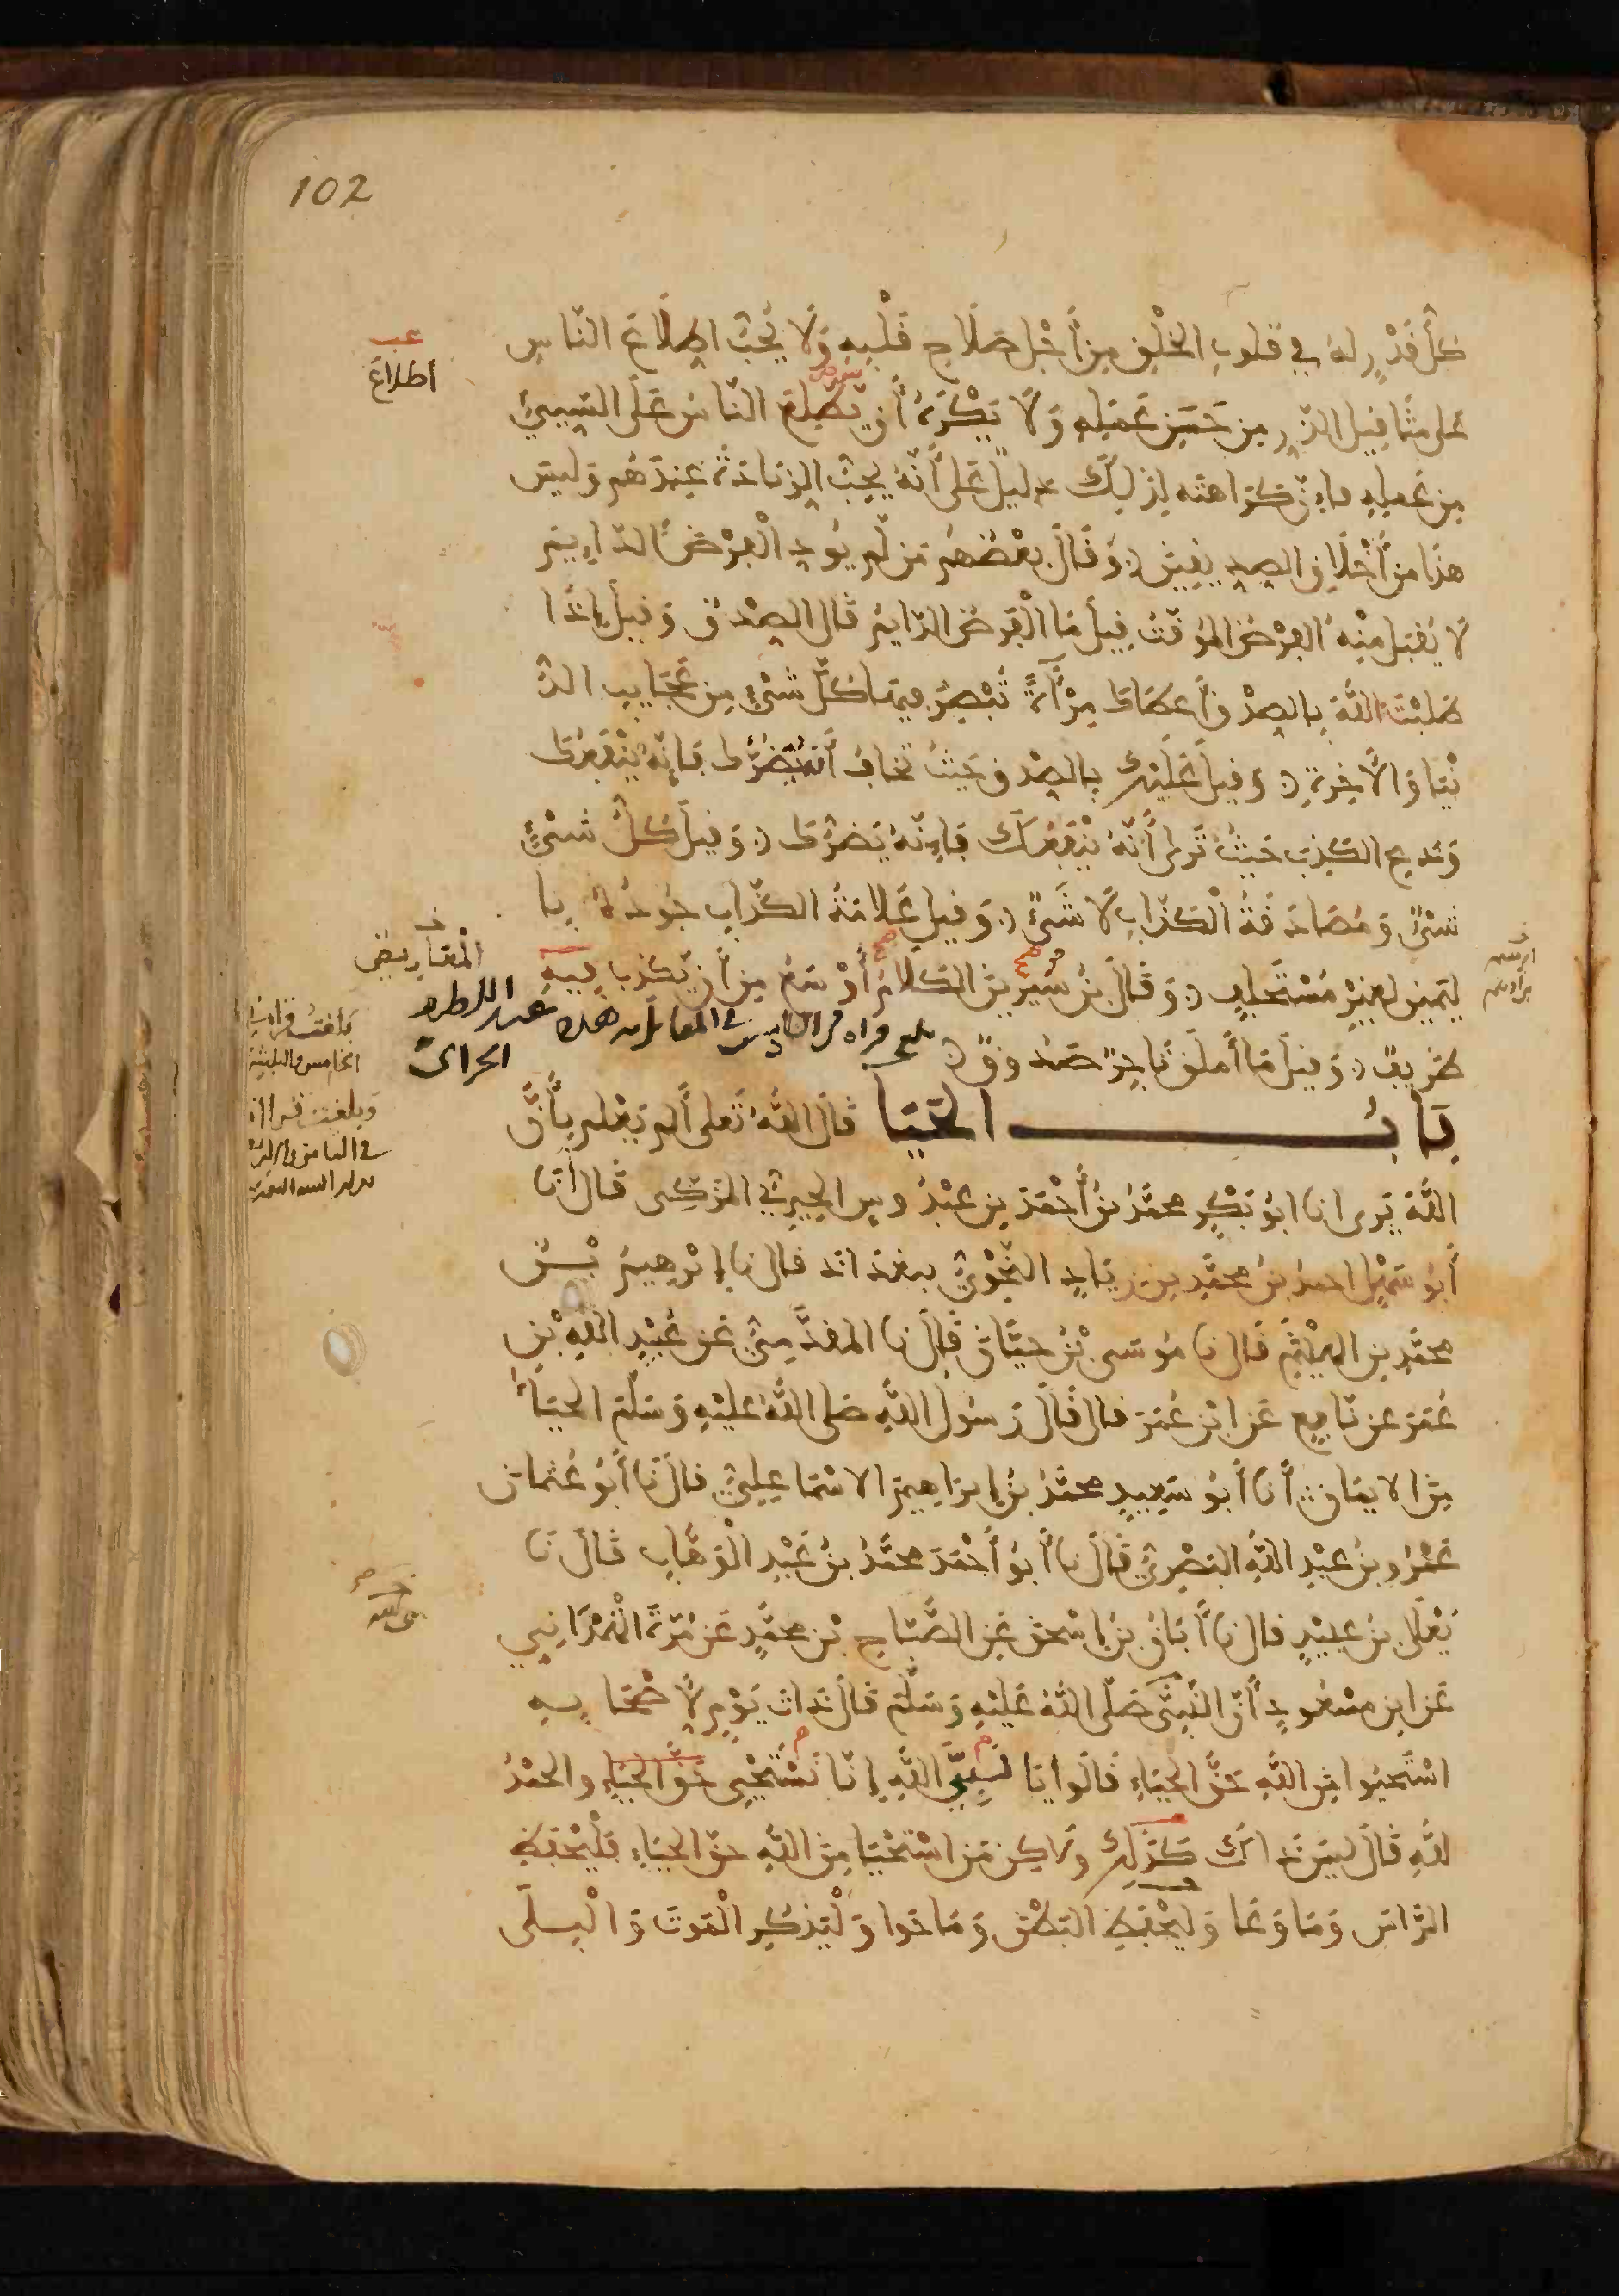 102
كل قدر له في قلوب الخلق من أجل صلاح قلبه ولا يحب اطلاع الناس
عب
اطلاع
على مثاقيل الذر من حسن عمله ولا يكره أن يطلع الناس على السيئ
من عمله فإن كراهته لذلك دليل على أنه يحب الزيادة عندهم وليس
هذا من أخلاق الصديقين وقال بعضهم من لم يود الفرض الدايم
لا يقبل منه الفرض الموقت قيل ما الفرض الدايم قال الصدق وقيل إذا
طلبت الله بالصدق أعطاك مرآة تبصر فيها كل شيء من عجايب الد
نيا والآخرة وقيل عليك بالصدق حيث تخاف أنه يضرك فإنه ينفعك
ودع الكذب حيث ترى أنه ينفعك فإنه يضرك وقيل كل شيء
شيء ومصادقة الكذاب لا شيء وقيل علامة الكذاب جوده با
المعاريض
ليمين لغير مستحلف وقال بن سيرين الكلام أوسع من أن يكذب فيه
ظريف وقيل ما أملق تاجر صدوق
بلغت قراءة
الخامس والثلثين
باب الحيا قال الله تعلى ألم يعلم بأن
الله يرى انا ابو بكر محمد بن أحمد بن عبدوس الحيري المزكى قال أنا
أبو سهل احمد بن محمد بن زياد النحوي ببغداد قال نا إبرهيم بن
محمد بن الهيثم قال نا موسى بن حيان قال نا المقدمي عن عبيد الله بن
عمر عن نافع عن ابن عمر قال قال رسول الله صلى الله عليه وسلم الحياء
من الايمان أنا أبو سعيد محمد بن إبراهيم الاسماعيلي قال نا أبو عثمان
عمرو بن عبد الله البصري قال نا أبو أحمد محمد بن عبد الوهاب قال نا
يعلى بن عبيد قال نا أبان بن إسحق عن الصباح بن محمد عن مرة الهمداني
عن ابن مسعود أن النبي صلى الله عليه وسلم قال ذات يوم لاصحابه
استحيوا من الله حق الحياء قالوا يا نبي الله إنا نستحيي حق الحياء والحمد
لله قال ليس ذاك كذلك ولكن من استحيا من الله حق الحياء فليحفظ
الراس وما وعا وليحفظ البطن وما حوا وليذكر الموت والبلى